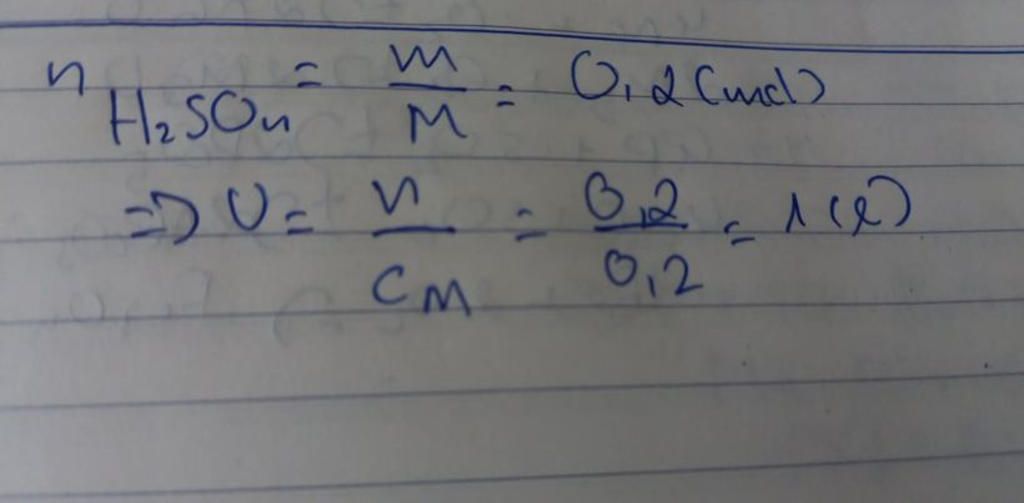 n H₂SO₄ = m/M = 0,2 (mol)
=> V = n/C_M = 0,2/0,2 = 1 (l)